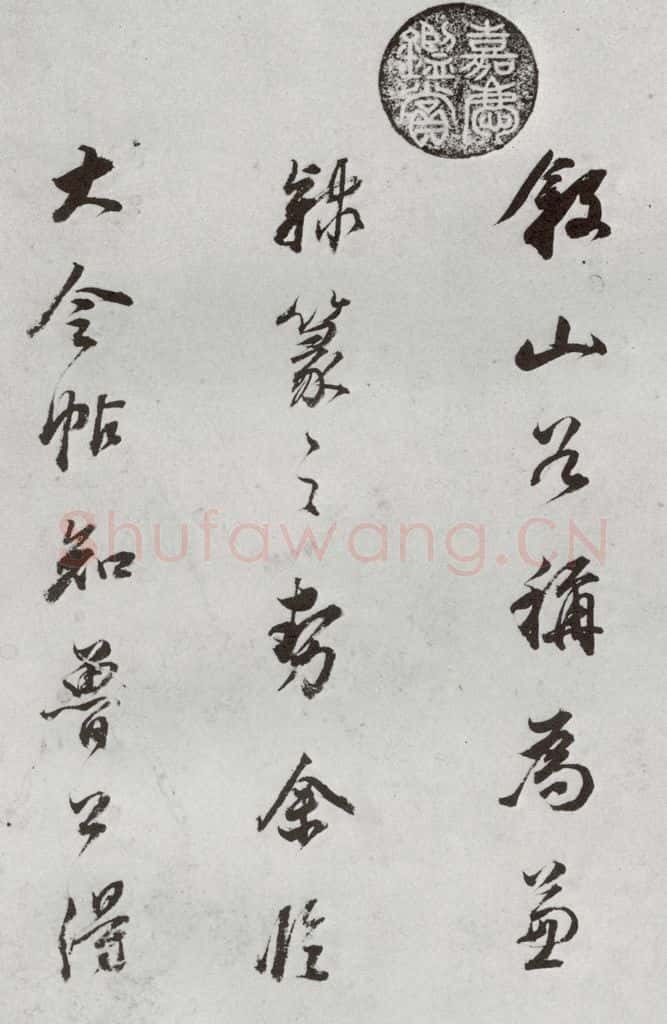 嘉慶鑑賞
叙山谷稱為兼
隸篆之勢余臨
大令帖知魯公得
Shufawang.CN